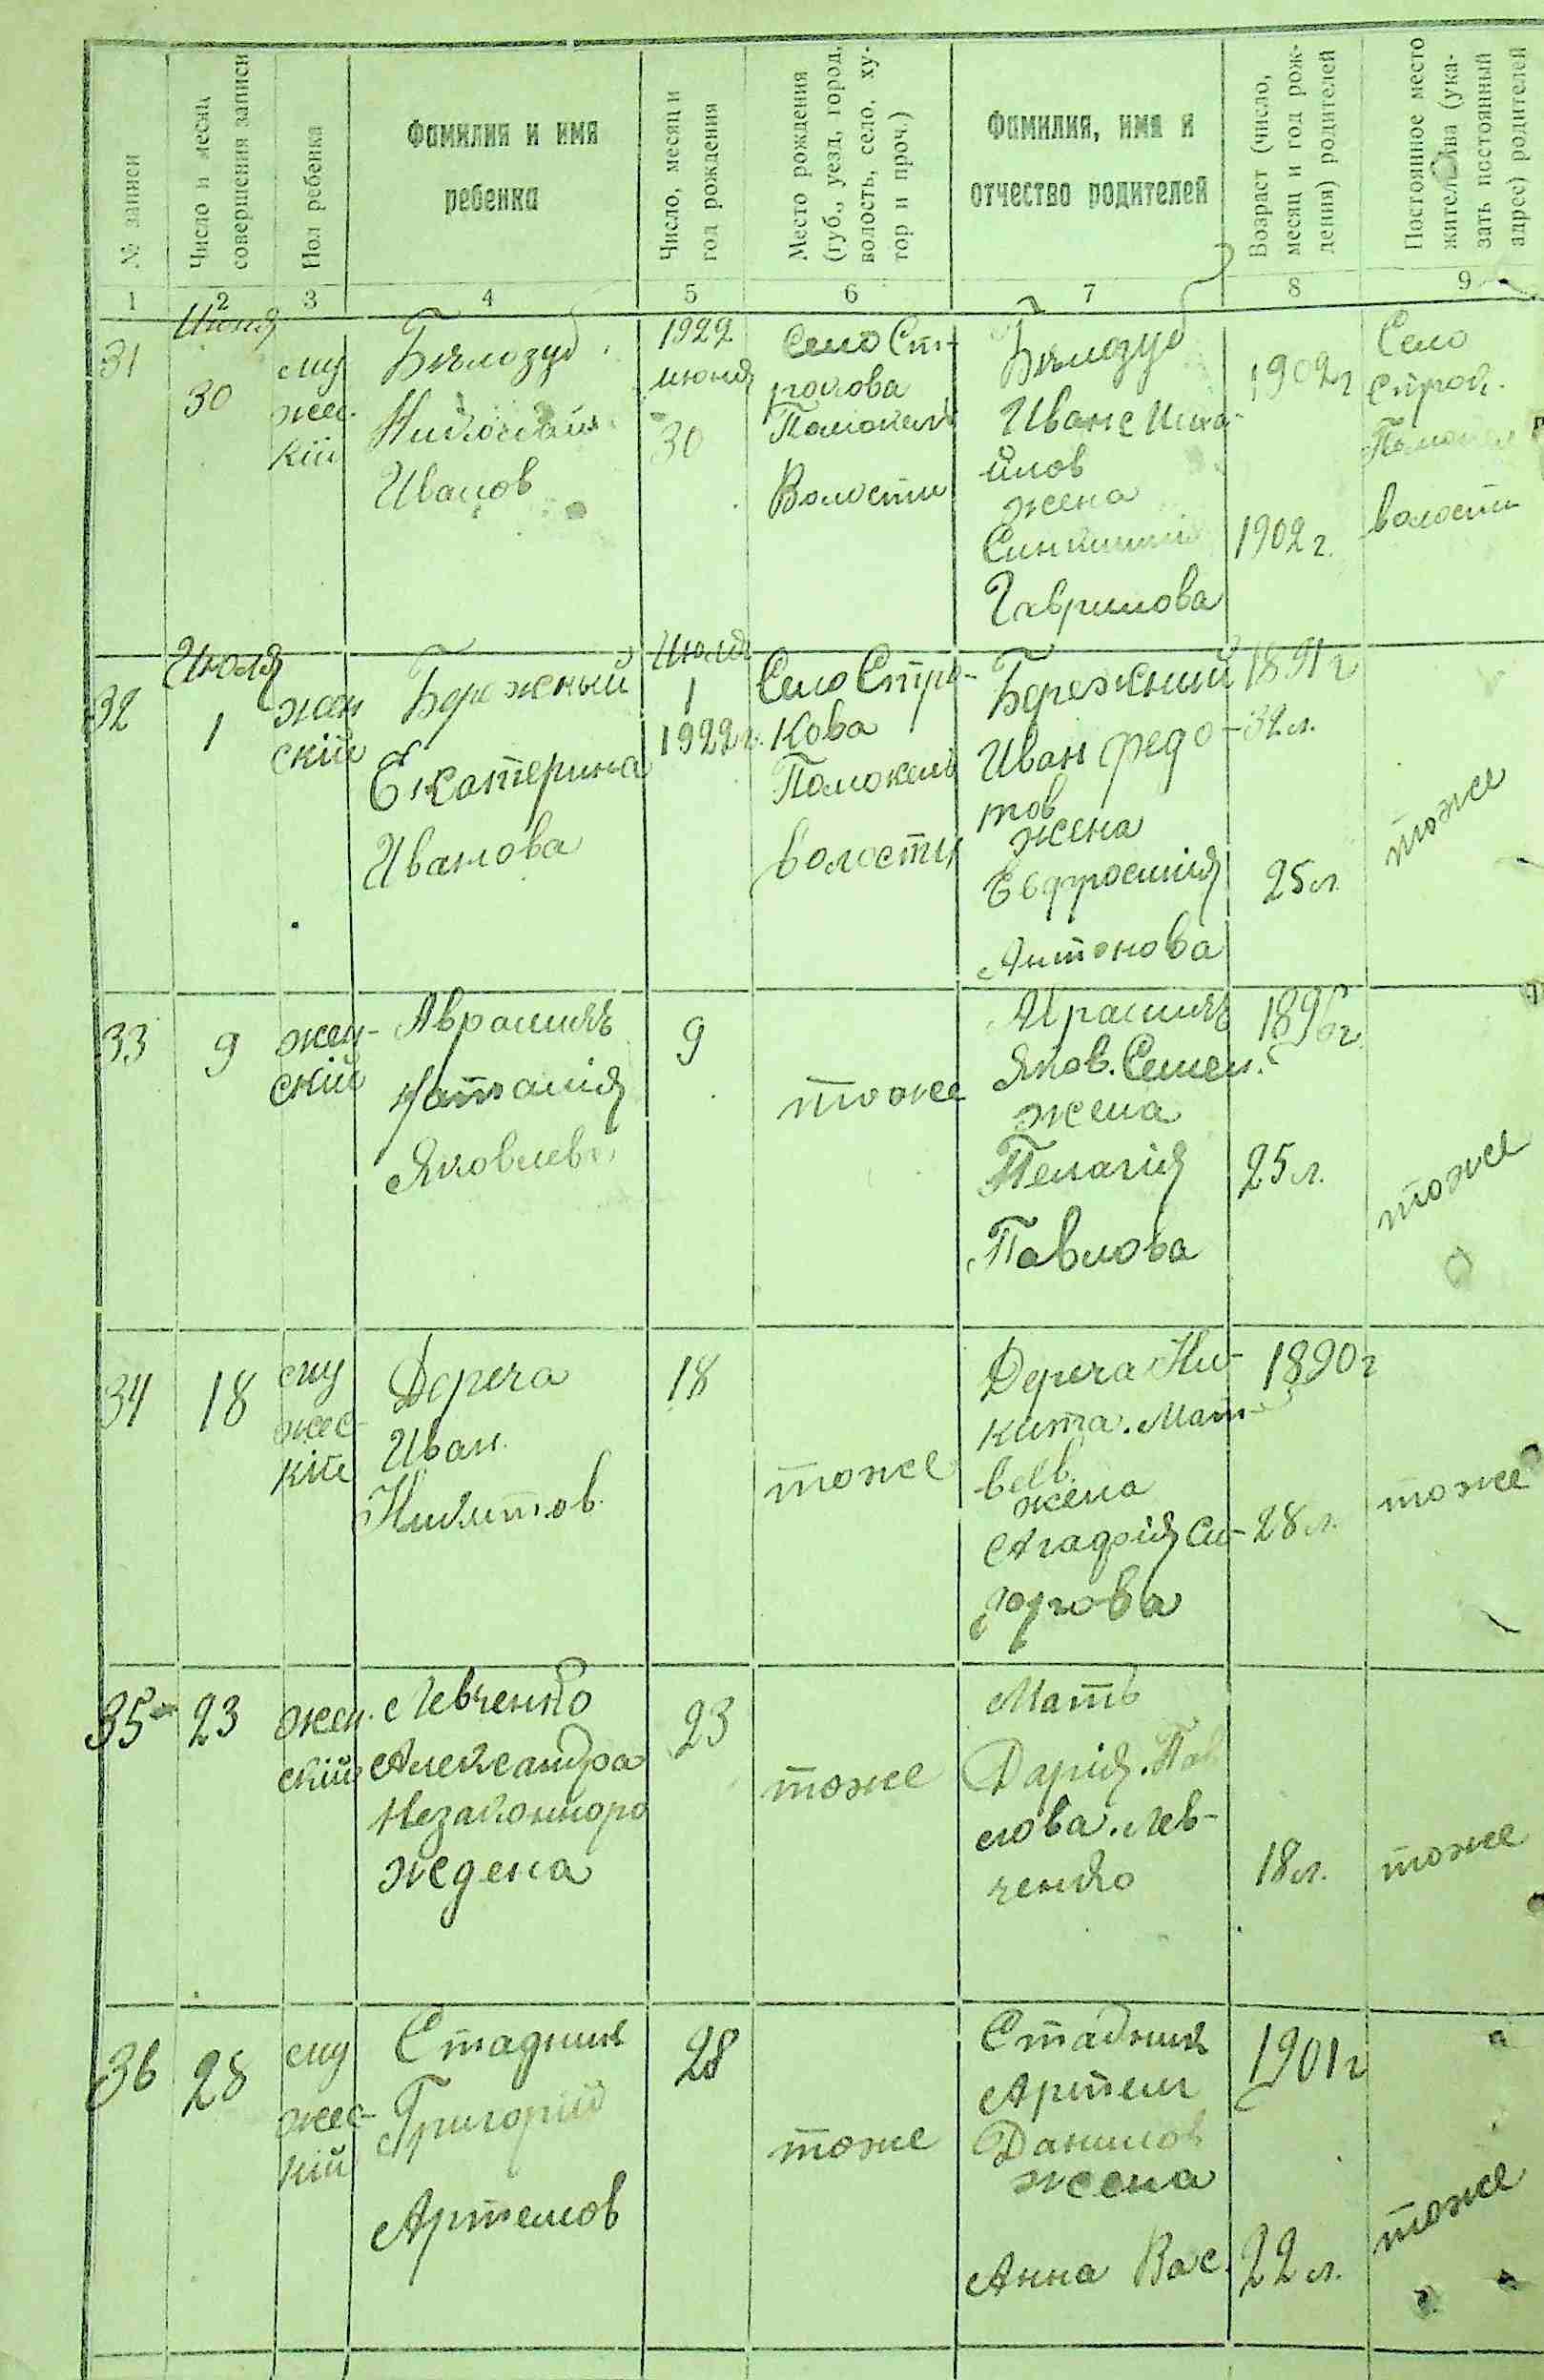 № записи
Число и месяц
совершения записи
Пол ребенка
Фамилия и имя
ребенка
Число, месяц и
год рождения
Место рождения
(губ., уезд, город,
волость, село, ху-
тор и проч.)
Фамилия, имя и
отчество родителей
Возраст (число,
месяц и год рож-
дения) родителей
Постоянное место
жительства (ука-
зать постоянный
адрес) родителей
1 2 3 4 5 6 7 8 9
31
Июня
30
муж
жес-
кій
Бѣлозуб
Николай
Иванов
1922
июня
30
Село
рокова
Волости
Бѣлозуб
Иван
жена
Гаврилова
1902 г
1902 г.
Село
Строк.
волости
32
Июля
1
жен
скій
Бережный
Екатерина
Иванова
Июля
1
1922 г.
Село Стро-
кова
волости
Бережный
Иван Федо-
ров
жена
Евфросинія
Антонова
1891 г
32 л.
25 л.
тоже
33
9
жен-
скій
Аврамикъ
Наталія
Яковлев
9
тоже
Яков. Семен.
жена
Пелагія
Павлова
1896 г.
25 л.
тоже
34
18
му
жес-
кій
Дерега
Иван.
Никитов.
18
тоже
Дерега Ни-
кита. Мат-
веев.
жена
Агафія Си-
дорова
1890 г
28 л.
тоже
35
23
жен.
скій
Левченко
Александра
Незаконноро
ждена
23
тоже
Мать
Дарія. Пав
лова. Лев-
ченко
18 л.
тоже
36
28
му
жес-
кій
Стадник
Григорій
Артемов
28
тоже
Стадник
Артем
Данилов
жена
Анна Вас.
1901 г
22 л.
тоже